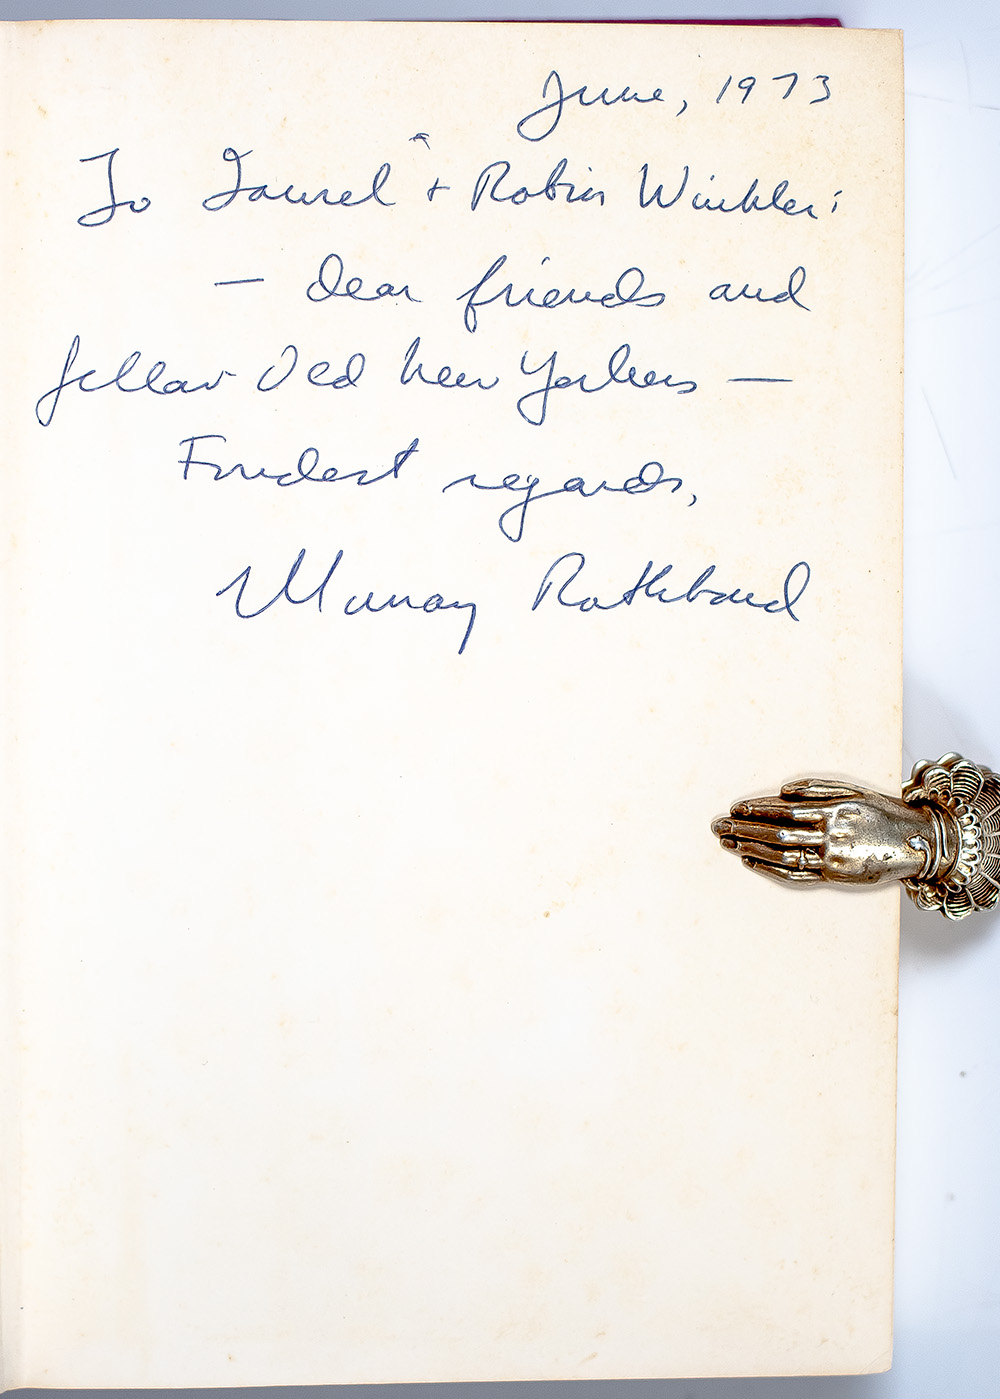 June, 1973
To Laurel + Robin Winkler:
— dear friends and
fellow Old New Yorkers —
Fondest regards,
Murray Rothbard